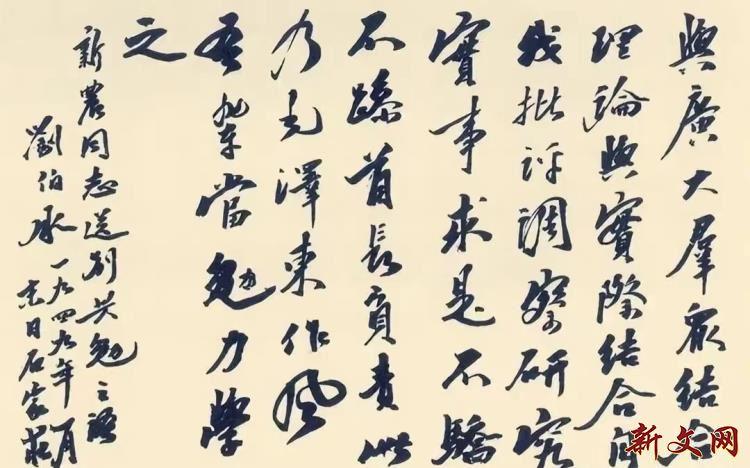 與廣大羣眾結合
理論與實際結合自
我批評調察研究
實事求是不驕
不躁首長負責此
乃毛澤東作風
吾輩當勉力學
之
新農同志送別共勉之語
劉伯承一九四九年一月
末日石家莊
新文网